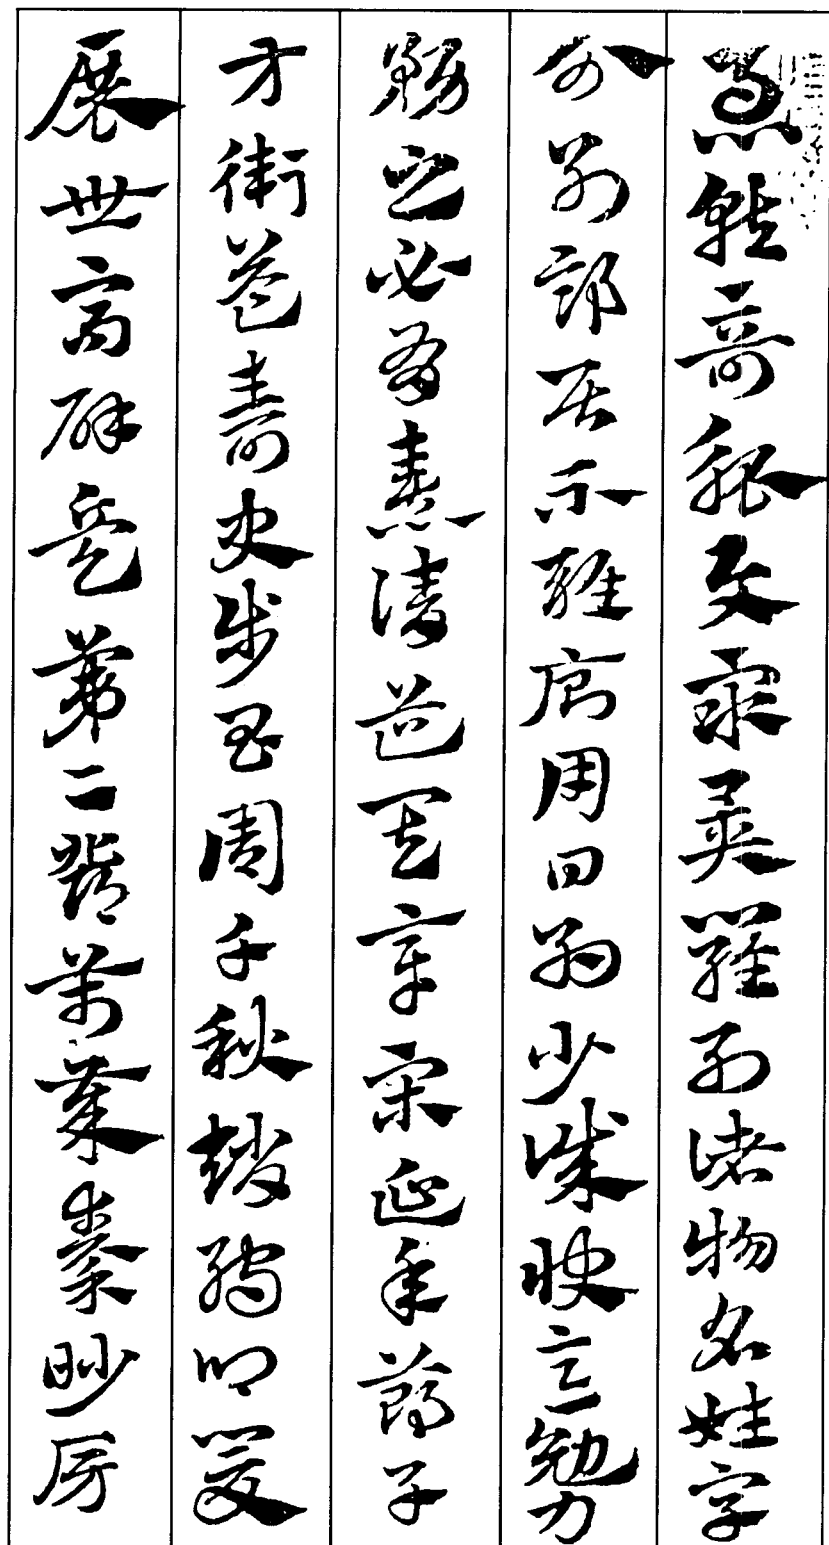 急就奇觚與眾異羅列諸物名姓字
分別部居不雜廁用日約少誠快意勉力
務之必有憙請道其章宋延年鄭子
方衛益壽史步昌周千秋趙孺卿爰
展世高辟兵第二鄧萬歲秦眇房